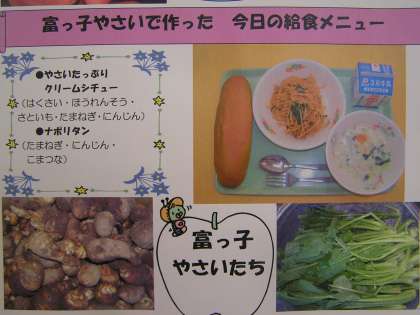 富っ子やさいで作った 今日の給食メニュー
●やさいたっぷり
クリームシチュー
(はくさい・ほうれんそう・
さといも・たまねぎ・にんじん)
●ナポリタン
(たまねぎ・にんじん・
こまつな)
富っ子
やさいたち